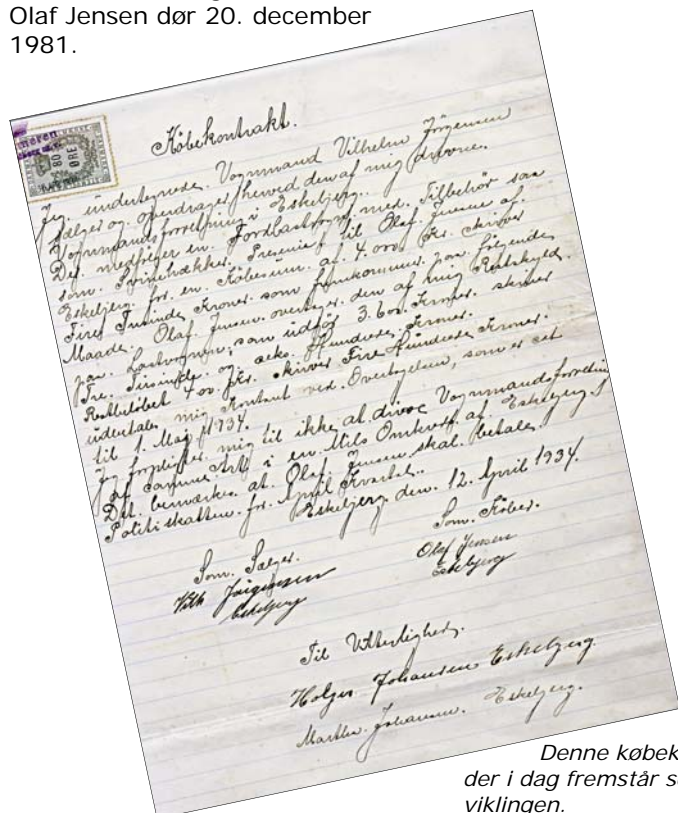 Olaf Jensen dør 20. december
1981.
80
ØRE
Købekontrakt.
Jeg. undertegnede. Vognmand Vilhelm Jörgensen
sælger og. overdrager herved den af mig drevne.
Vognmandsforretning i Eskebjerg..
Det. medfølger en Fordlastvogn med. Tilbehör saa
som. Svinehækker. Presenie. til Olaf. Jensen af.
Eskebjerg. for. en. Købesum. af. 4.000 Kr. skriver
Fire Tusinde Kroner. som fremkommer. paa følgende
Maade. Olaf. Jensen. overtager. den af mig Restskyld.
paa. Lastvognen, som udgör 3.600. Kroner. skriver
Tre. Tusinde. og. seks. Hundrede. Kroner.
Restbelöbet 400. Kr. skriver Fire Hundrede Kroner.
udbetales mig Kontant ved. Overtagelsen, som er sat
til 1. Maj 1934.
Jeg forpligter mig til ikke at. drive Vognmandsforretning
af samme Art i en Mils Omkreds af. Eskebjerg.
Det. bemærkes at. Olaf. Jensen skal. betale.
Politiskatten. for. April Kvartal..
Eskebjerg den. 12. April 1934.
Som. Sælger. Som. Köber.
Vilh Jörgensen Olaf Jensen
Eskebjerg Eskebjerg
Til Vitterlighed.
Holger Johansen Eskebjerg.
Martha. Johansen. Eskebjerg.
Denne købek
der i dag fremstår s
viklingen.